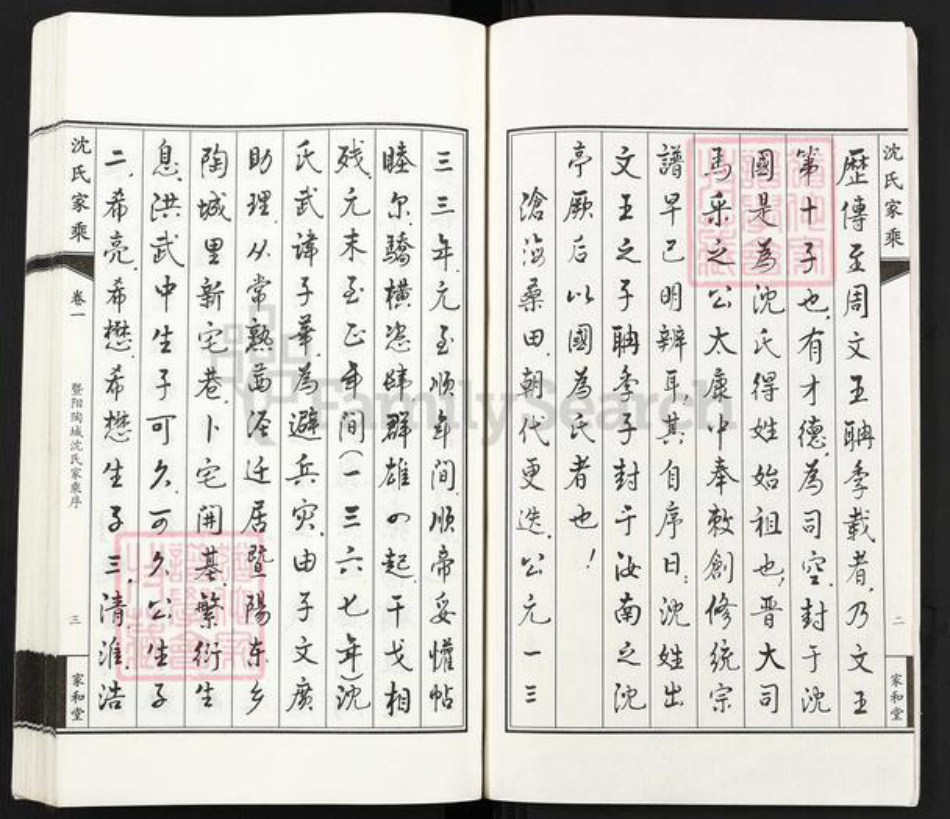 沈氏家乘
二
家和堂
歷傳至周文王聃季載者，乃文王
第十子也，有才德，為司空，封于沈
國是為沈氏得姓始祖也，晋大司
馬乘之公太康中奉敕創修統宗
譜早已明辨耳，其自序曰：沈姓出
文王之子聃季子封于汝南之沈
亭厥后以國為氏者也！
滄海桑田，朝代更迭，公元一三
三三年，元至順年間，順帝妥懽帖
睦尔，驕橫恣肆群雄四起，干戈相
残，元末至正年間（一三六七年）沈
氏武諱子華，為避兵灾，由子文廣
助理，从常熟茜泾迁居暨陽东乡
陶城里新宅巷，卜宅開基，繁衍生
息，洪武中生子可久，可久公生子
二，希亮，希懋，希懋生子三，清，淮，浩
沈氏家乘
卷一
暨阳陶城沈氏家乘序
三
家和堂
FamilySearch